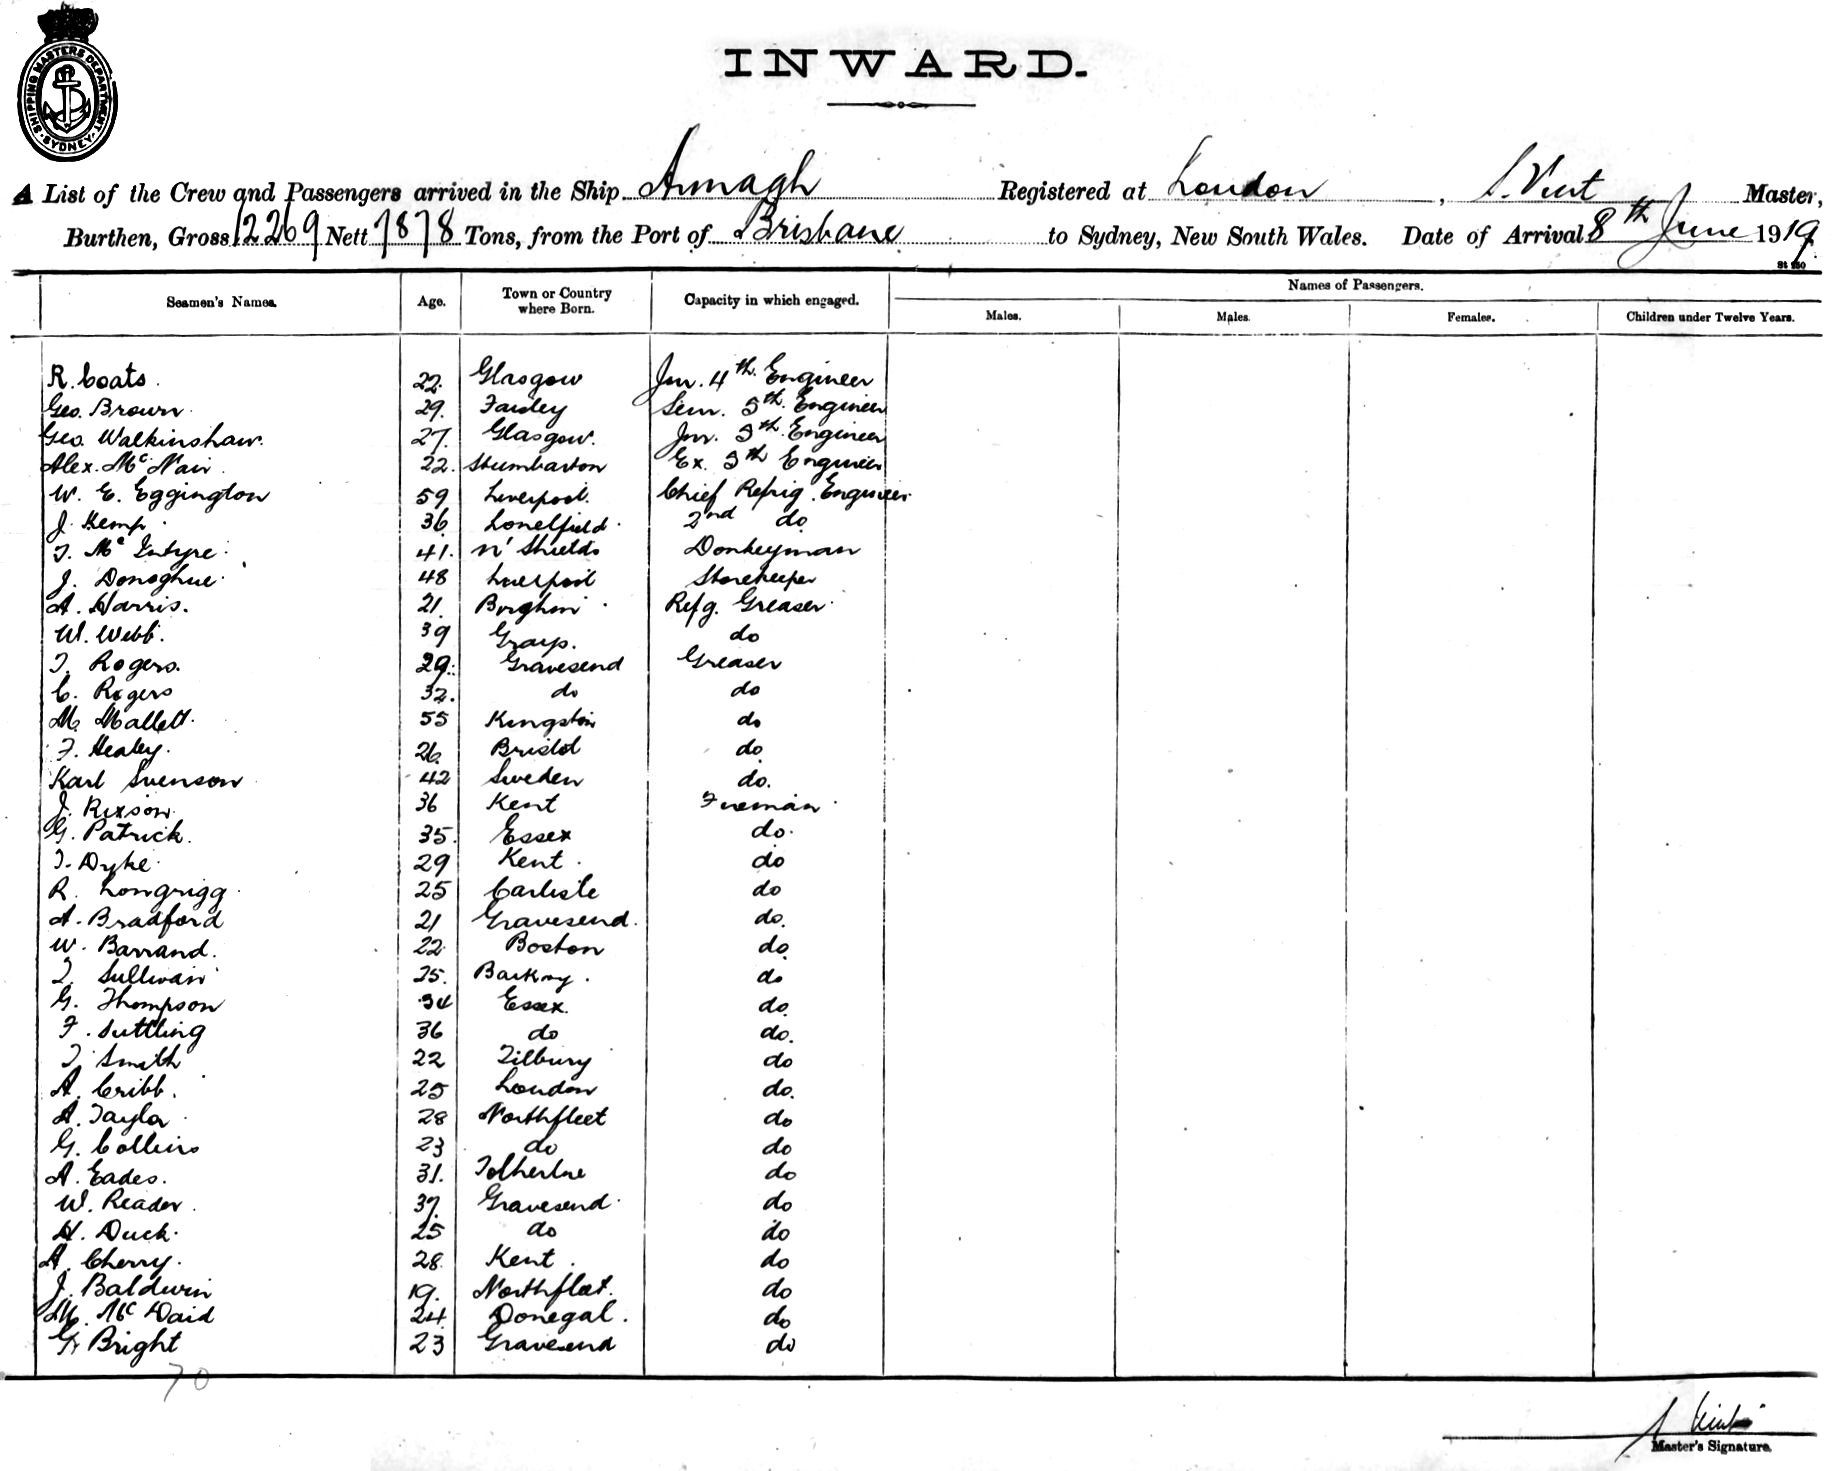 SHIPPING MASTERS DEPARTMENT SYDNEY
INWARD.
A List of the Crew and Passengers arrived in the Ship Armagh Registered at London, S. Vint Master,
Burthen, Gross 12269 Nett 7878 Tons, from the Port of Brisbane to Sydney, New South Wales. Date of Arrival 8th June 1919
Names of Passengers.
Seamen's Names. Age. Town or Country where Born. Capacity in which engaged. Males. Males. Females. Children under Twelve Years.
R. Coats. 22. Glasgow Jnr. 4th Engineer
Geo. Brown. 29. Senr. 5th Engineer
Geo. Walkinshaw. 27. Glasgow. Jnr. 5th Engineer
Alex. McNair. 22. Ex. 5th Engineer
W. E. Eggington 59 Liverpool. Chief Refrig. Engineer
J. Kemp. 36. 2nd do
T. McIntyre. 41. N' Shields Donkeyman
J. Donoghue. 48 Liverpool Storekeeper
A. Harris. 21. Refg. Greaser
W. Webb. 39 Grays. do
T. Rogers. 29. Gravesend Greaser
C. Rogers 32. do do
M. Mallett. 55 Kingston do
F. Healey. 26. Bristol do
Karl Svenson 42 Sweden do.
J. Rixson. 36 Kent Fireman
G. Patrick. 35. Essex do.
T. Dyke. 29 Kent. do
R. Longrigg. 25 Carlisle do
A. Bradford 21 Gravesend. do.
W. Barrand. 22 Boston do.
T. Sullivan 25. do
G. Thompson 34 Essex. do.
F. Suttling 36 do do.
T. Smith 22 Tilbury do
A. Cribb. 25 London do.
A. Taylor 28 Northfleet do
G. Collins 23 do do
A. Eades. 31. do
W. Reader. 37. Gravesend. do
H. Duck. 25 do do
A. Cherry. 28. Kent. do
J. Baldwin 19. Northfleet. do
M. McDaid 24. Donegal. do
G. Bright 23 Gravesend do
70
Master's Signature.